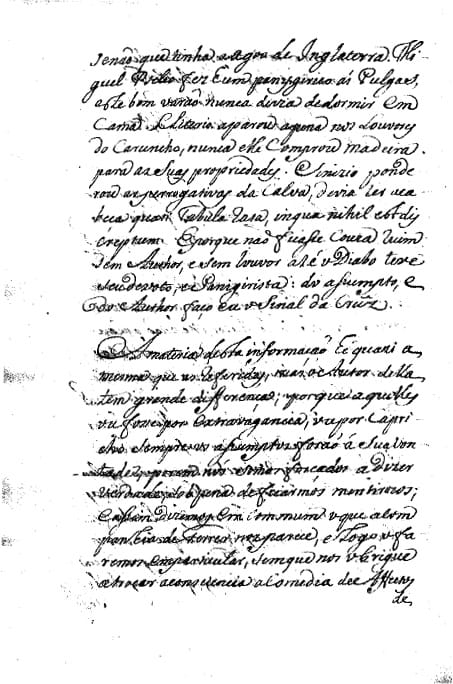 senaõ que tinha a agoa de Inglaterra. Mi
guel fez hum panegirico ás Pulgas,
este bom varaõ nunca devia de dormir em
Cama. aparou a pena nos Louvores
do Caruncho, nunca elle comprou madeira
para as suas propriedades. Sinizio ponde
rou as perrogativas da Calva, devia ter a ca
beça quasi Tabula rasa, in qua nihil est dis
creptum. E porque naõ ficasse Couza ruim
sem Author, e sem louvor até o Diabo teve
seu devoto, e Panigirista: do asumpto, e
do Author faço eu o Sinal da Cruz.
A materia desta informaçaõ he quasi a
mesma que as referidas, mas o Autor della
tem grande differença; porque aquelles
ou fosse por extravagancia, ou por Capri
cho sempre os asumptos foraõ á sua von
tade, porem nós somos forcados a dizer
verdade sob pena de ficarmos mentirosos;
e assim diremos em Commum o que a Com
panhia de nos parece, e logo o fa
remos em particular, sem que nos obrigue
a trocar a consciencia a Comedia de
de